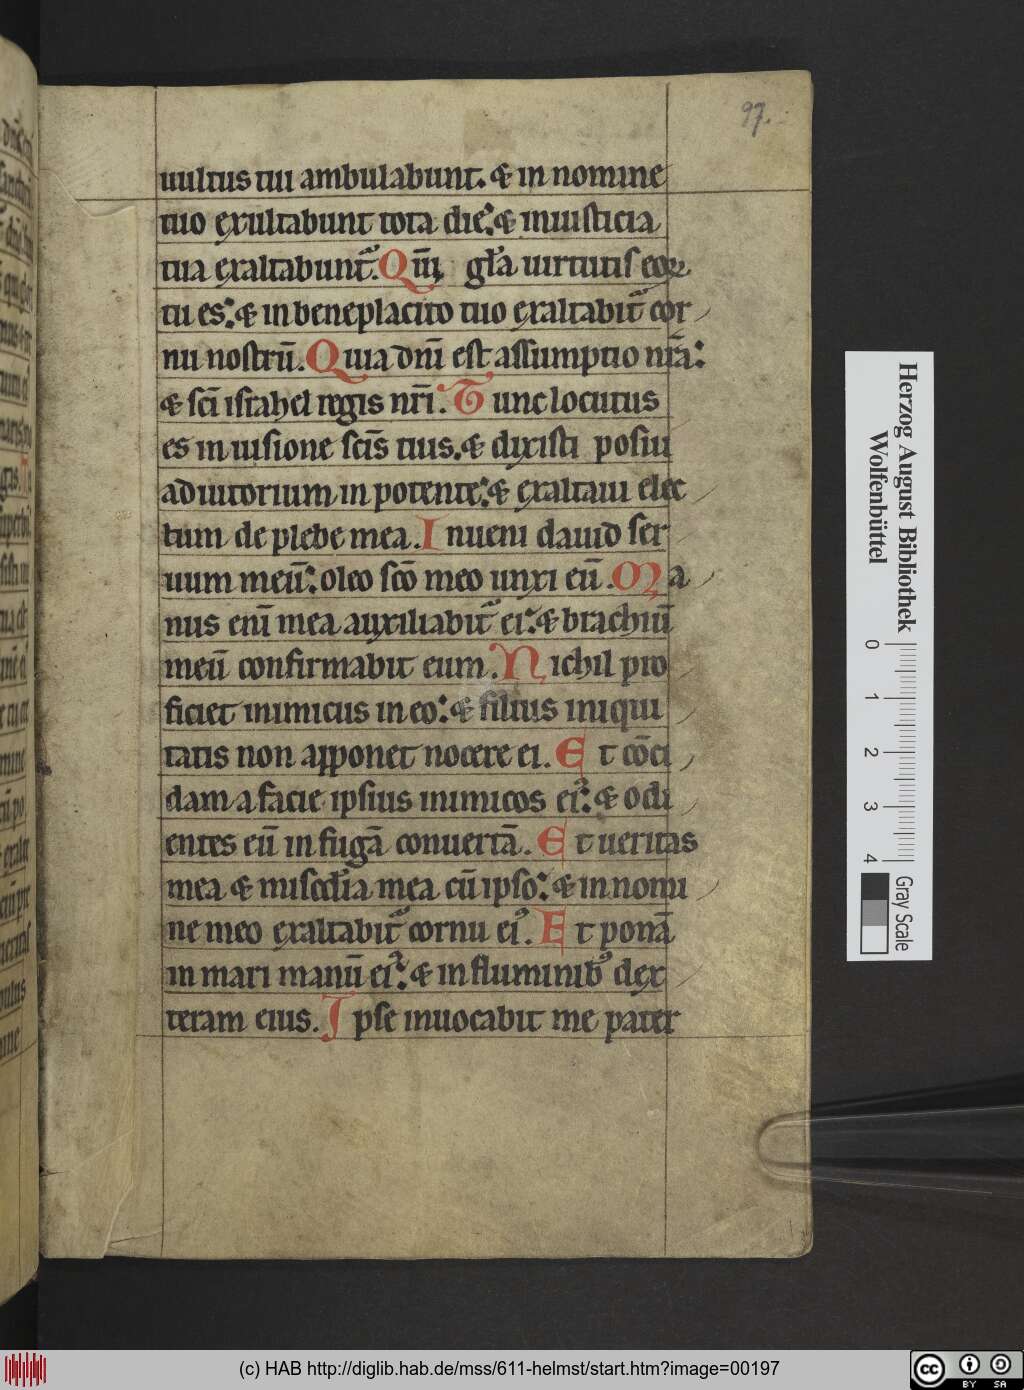 97.
uultus tui ambulabunt. & in nomine
tuo exultabunt tota die: & iniusticia
tua exaltabunt᷑. Qm̄ gl̄a uirtutis eoꝝ
tu es: & in beneplacito tuo exaltabit᷑ cor
nu nostrū. Quia dn̄i est assumptio nr̄a:
& sc̄i israhel regis nr̄i. Tunc locutus
es in uisione sc̄is tuis. & dixisti posui
adiutorium in potente: & exaltaui elec
tum de plebe mea. Inueni dauid ser
uum meū: oleo sc̄o meo unxi eū. Ma
nus enī mea auxiliabit᷑ ei: & brachiū
meū confirmabit eum. Nichil pro
ficiet inimicus in eo: & filius iniqui
tatis non apponet nocere ei. Et cōci
dam a facie ipsius inimicos eiꝰ: & odi
entes eū in fugā conuertā. Et ueritas
mea & misc̄dia mea cū ipso: & in nomi
ne meo exaltabit᷑ cornu eiꝰ. Et ponā
in mari manū eiꝰ: & in fluminibꝰ dex
teram eius. Ipse inuocabit me pater
Herzog August Bibliothek
Wolfenbüttel
0 1 2 3 4
Gray Scale
(c) HAB http://diglib.hab.de/mss/611-helmst/start.htm?image=00197
cc BY SA